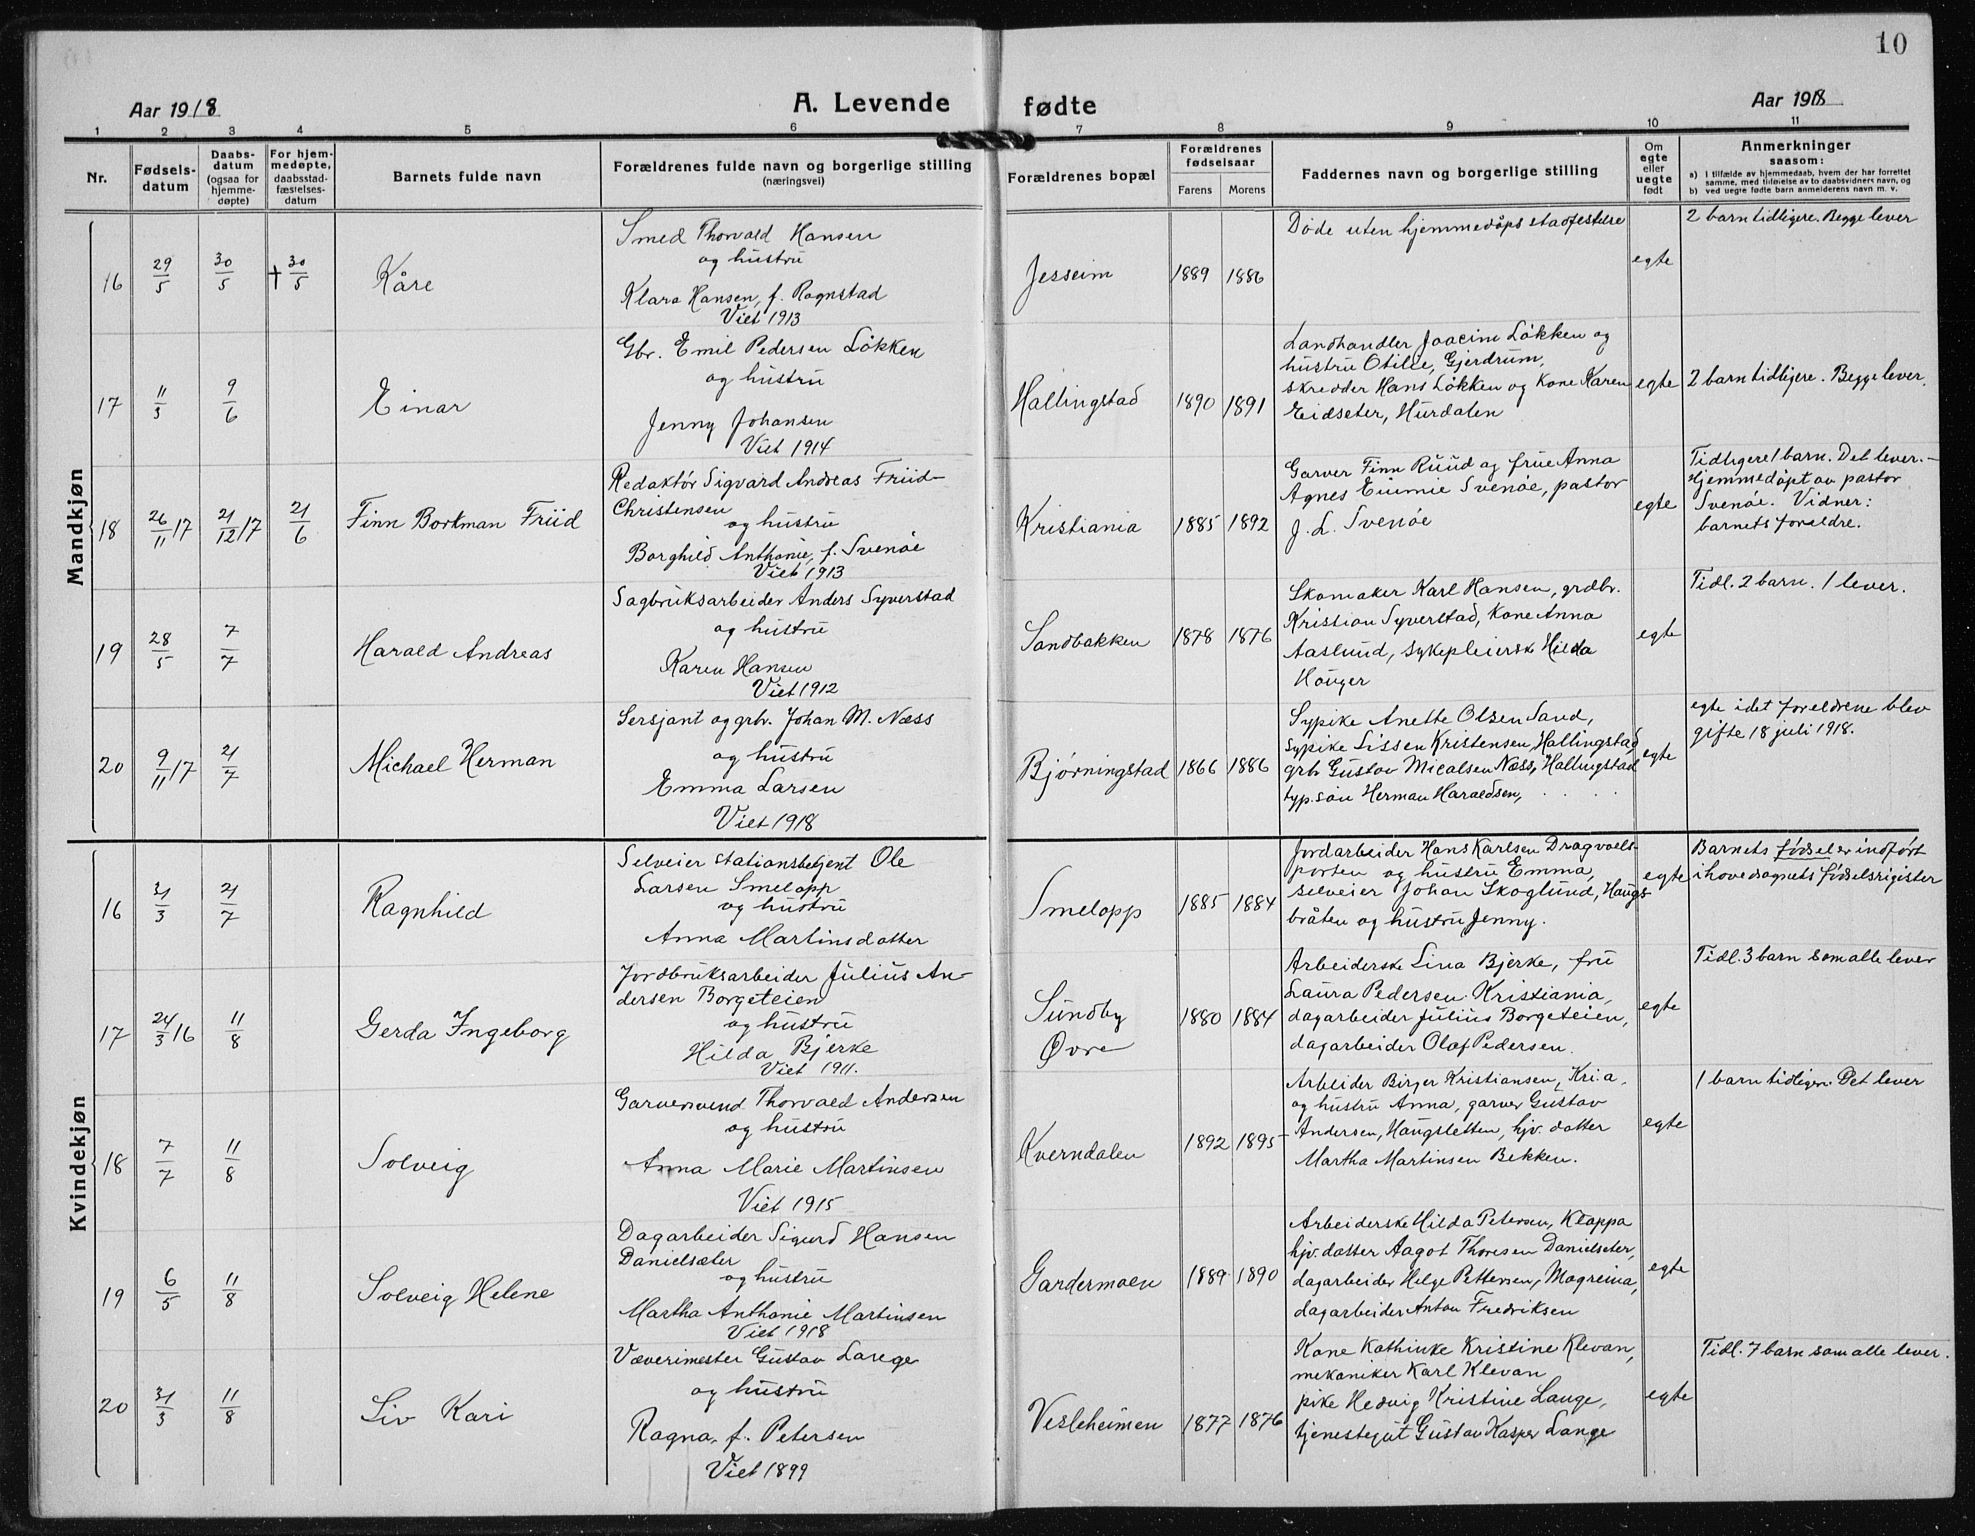 10
Aar 1918
A. Levende fødte
Aar 1918
1 2 3 4 5 6 7 8 9 10 11
Nr.
Fødsels-
datum
Daabs-
datum
(ogsaa for
hjemme-
døpte)
For hjem-
medøpte,
daabsstad-
fæstelses-
datum
Barnets fulde navn
Forældrenes fulde navn og borgerlige stilling
(næringsvei)
Forældrenes bopæl
Forældrenes
fødselsaar
Farens Morens
Faddernes navn og borgerlige stilling
Om
egte
eller
uegte
født
Anmerkninger
saasom:
a) I tilfælde av hjemmedaab, hvem der har forrettet
samme, med tilføielse av to daabsvidners navn, og
b) ved uegte fødte barn anmelderens navn m. v.
Mandkjøn
16
29/5
30/5
† 30/5
Kåre
Smed Thorvald Hansen
og hustru
Klara Hansen, f. Rognstad
Viet 1913
Jesseim
1889 1886
Døde uten hjemmedåps stadfestelse
egte
2 barn tidligere. Begge lever
17
11/3
9/6
Einar
Gbr. Emil Pedersen Løkken
og hustru
Jenny Johansen
Viet 1914
Hallingstad
1890 1891
Landhandler Joacim Løkken og
hustru Otilie, Gjerdrum,
skredder Hans Løkken og Kone Karen
Eidseter, Hurdalen
egte
2 barn tidligere. Begge lever.
18
26/11 17
21/12 17
21/6
Finn Bortman Friid
Redaktør Sigvard Andreas Friid-
Christensen
og hustru
Borghild Anthonie, f. Svenøe
Viet 1913
Kristiania
1885 1892
Garver Finn Ruud og frue Anna
Agnes Svenøe, pastor
J. L. Svenøe
egte
Tidligere 1 barn. Det lever.-
Hjemmedøpt av pastor
Svenøe. Vidner:
barnets foreldre.
19
28/5
7/7
Harald Andreas
Sagbruksarbeider Anders Syverstad
og hustru
Karen Hansen
Viet 1912
Sandbakken
1878 1876
Skomaker Karl Hansen, grdbr.
Kristian Syverstad, Kone Anna
Aaslund, sykepleierske Hilda
Hauger
egte
Tidl. 2 barn. 1 lever.
20
9/11 17
21/7
Michael Herman
Sersjant og grbr. Johan M. Næss
og hustru
Emma Larsen
Viet 1918
Bjørningstad
1866 1886
Sypike Anette Olsen Sand,
sypike Lissen Kristensen, Hallingstad
grbr Gustav Micalsen Næss, Hallingstad
typ.søn Herman Haraldsen,
egte
egte idet foreldrene blev
gifte 18 juli 1918.
Kvindekjøn
16
31/3
21/7
Ragnhild
Selveier stationsbetjent Ole
Larsen Smelapp
og hustru
Anna Martinsdatter
Smelopp
1885 1884
Jordarbeider Hans Karlsen Dragvols-
porten og hustru Emma,
selveier Johan Skoglund, Haugs-
bråten og hustru Jenny.
egte
Barnets fødsel er indført
i hovedsognets fødselsrigister
17
24/3 16
11/8
Gerda Ingeborg
Jordbruksarbeider Julius An-
dersen Borgeteien
og hustru
Hilda Bjerke
Viet 1911.
Sundby
Øvre
1880 1884
Arbeiderske Lina Bjerke, fru
Laura Pedersen Kristiania,
dagarbeider Julius Borgeteien,
dagarbeider Olaf Pedersen.
egte
Tidl. 3 barn som alle lever
18
7/7
11/8
Solveig
Garversvend Thorvald Andersen
og hustru
Anna Marie Martinsen
Viet 1915
Kverndalen
1892 1895
Arbeider Birger Kristiansen, Kr.i.a,
og hustru Anna, garver Gustav
Andersen, Haugsletten, hjv. datter
Martha Martinsen Bekken.
egte
1 barn tidligere. Det lever
19
6/5
11/8
Solveig Helene
Dagarbeider Sigurd Hansen
Danielsæter
og hustru
Martha Anthonie Martinsen
Viet 1918
Gardermoen
1889 1890
Arbeiderske Hilda Petersen, Klappa
hjv. datter Aagot Thoresen Danielseter,
dagarbeider Helge Pettersen, Mogreina,
dagarbeider Anton Fredriksen
egte
20
31/3
11/8
Liv Kari
Væverimester Gustav Lange
og hustru
Ragna, f. Petersen
Viet 1899
Vesleheimen
1877 1876
Kone Kathinke Kristine Klevan,
mekaniker Karl Klevan
pike Hedvig Kristine Lange,
tjenestegut Gustav Kasper Lange
egte
Tidl. 7 barn som alle lever.